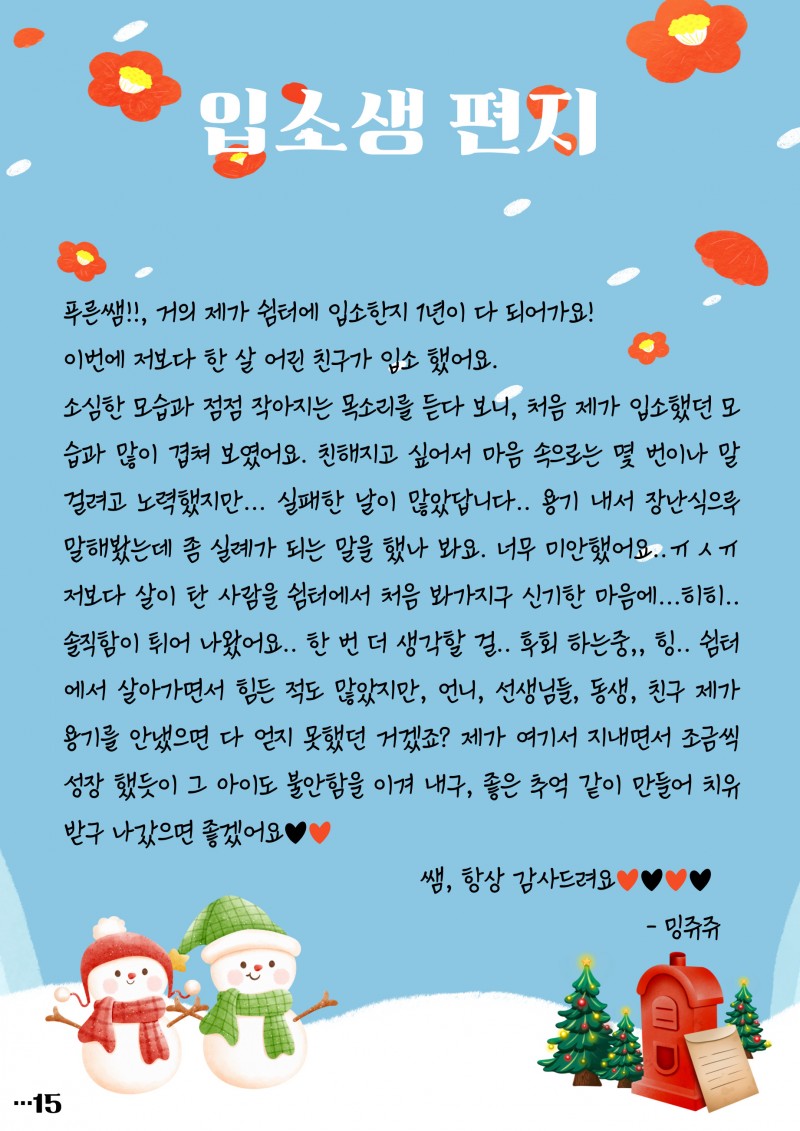 입소생 편지
푸른쌤!!, 거의 제가 쉼터에 입소한지 1년이 다 되어가요!
이번에 저보다 한 살 어린 친구가 입소 했어요.
소심한 모습과 점점 작아지는 목소리를 듣다 보니, 처음 제가 입소했던 모
습과 많이 겹쳐 보였어요. 친해지고 싶어서 마음 속으로는 몇 번이나 말
걸려고 노력했지만... 실패한 날이 많았답니다.. 용기 내서 장난식으루
말해봤는데 좀 실례가 되는 말을 했나 봐요. 너무 미안했어요..ㅠㅅㅠ
저보다 살이 탄 사람을 쉼터에서 처음 봐가지구 신기한 마음에...히히..
솔직함이 튀어 나왔어요.. 한 번 더 생각할 걸.. 후회 하는중,, 힝.. 쉼터
에서 살아가면서 힘든 적도 많았지만, 언니, 선생님들, 동생, 친구 제가
용기를 안냈으면 다 얻지 못했던 거겠죠? 제가 여기서 지내면서 조금씩
성장 했듯이 그 아이도 불안함을 이겨 내구, 좋은 추억 같이 만들어 치유
받구 나갔으면 좋겠어요🖤❤️
쌤, 항상 감사드려요❤️🖤❤️🖤
- 밍쥬쥬
···15